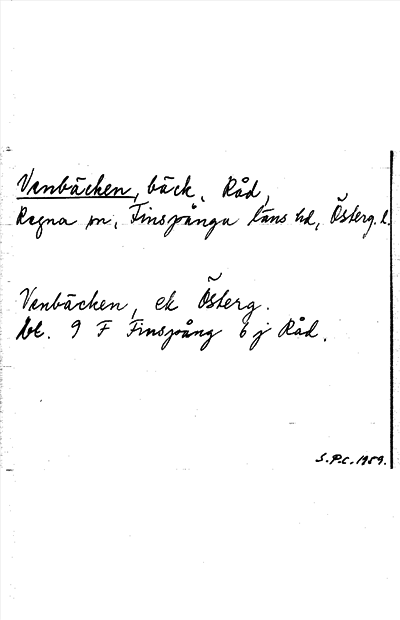 Venbäcken, bäck, Råd,
Regna sn, Finspånga läns hd, Österg. l.
Venbäcken, ek Österg.
bl. 9 F Finspång 6 j Råd.
S.P.C. 1959.